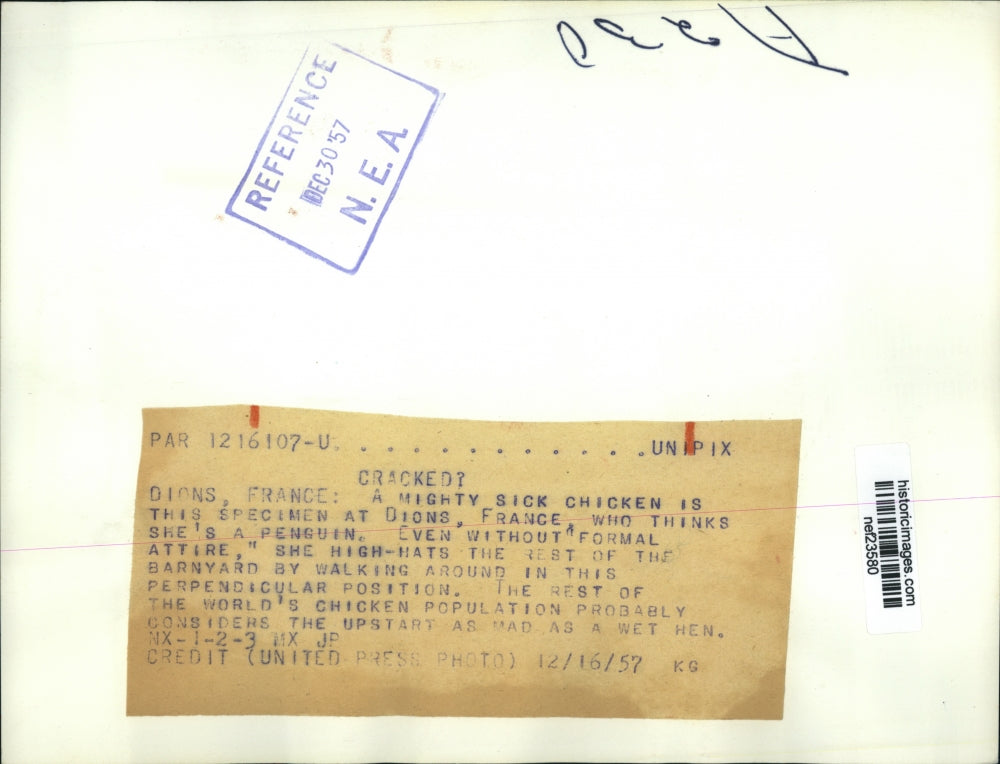 A220
REFERENCE
DEC 30 '57
N. E. A.
PAR 1216107-U. . . . . . . . . . . . . .UNIPIX
CRACKED?
DIONS, FRANCE: A MIGHTY SICK CHICKEN IS
THIS SPECIMEN AT DIONS, FRANCE, WHO THINKS
SHE'S A PENGUIN. EVEN WITHOUT "FORMAL
ATTIRE," SHE HIGH-HATS THE REST OF THE
BARNYARD BY WALKING AROUND IN THIS
PERPENDICULAR POSITION. THE REST OF
THE WORLD'S CHICKEN POPULATION PROBABLY
CONSIDERS THE UPSTART AS MAD AS A WET HEN.
NX-1-2-3 MX JP
CREDIT (UNITED PRESS PHOTO) 12/16/57 KG
historicimages.com
nef23580